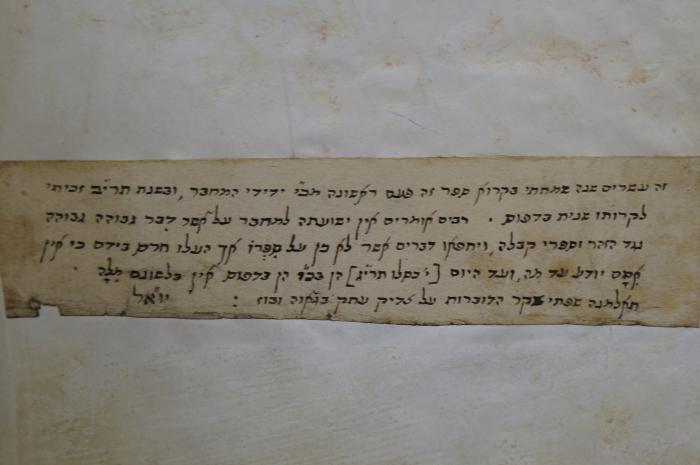 זה עשרים שנה שמחתי בקרוא ספר זה פעם ראשונה מכ״י ידידי המחבר, ובשנת תרי״ב זכיתי
לקרותו שנית בדפוס . רבים אומרים אין ישועתה למחבר על אשר דבר גבוהה גבוהה
נגד הזהר וספרי קבלה, ויחפאו דברים אשר לא כן על ספרו אך העלו חרס בידם כי אין
אתם יודע עד מה, ועד היום [י׳ כסלו תרי״ג] הן בכ״י הן בדפוס אין בלשונם מלה .
תאלמנה שפתי שקר הדוברות על צדיק עתק בגאוה ובוז : יואל